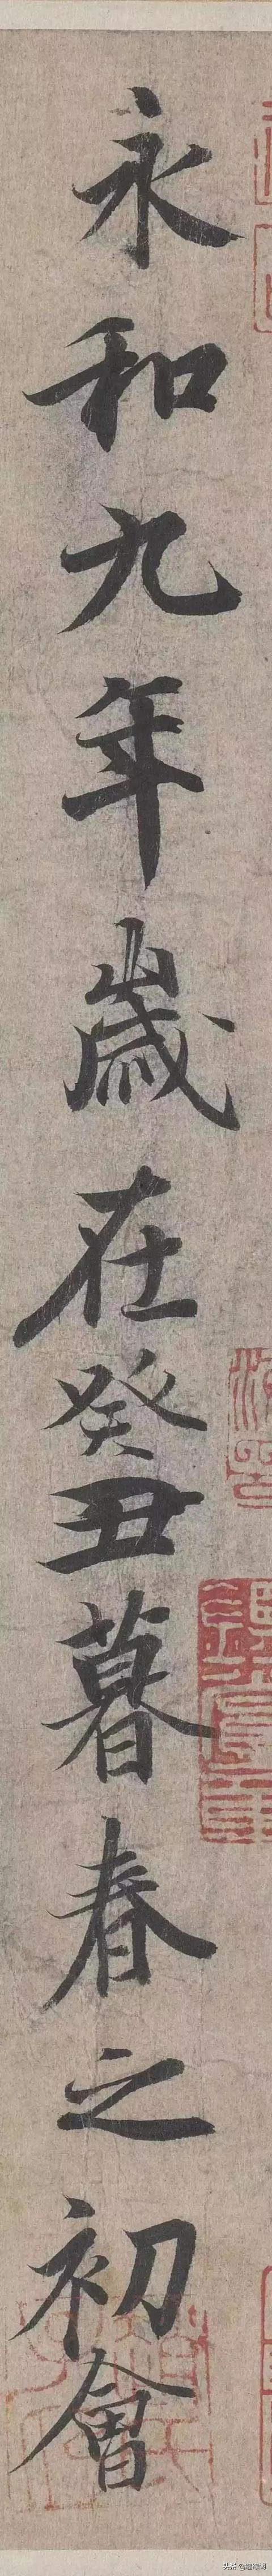 永和九年歲在癸丑暮春之初會